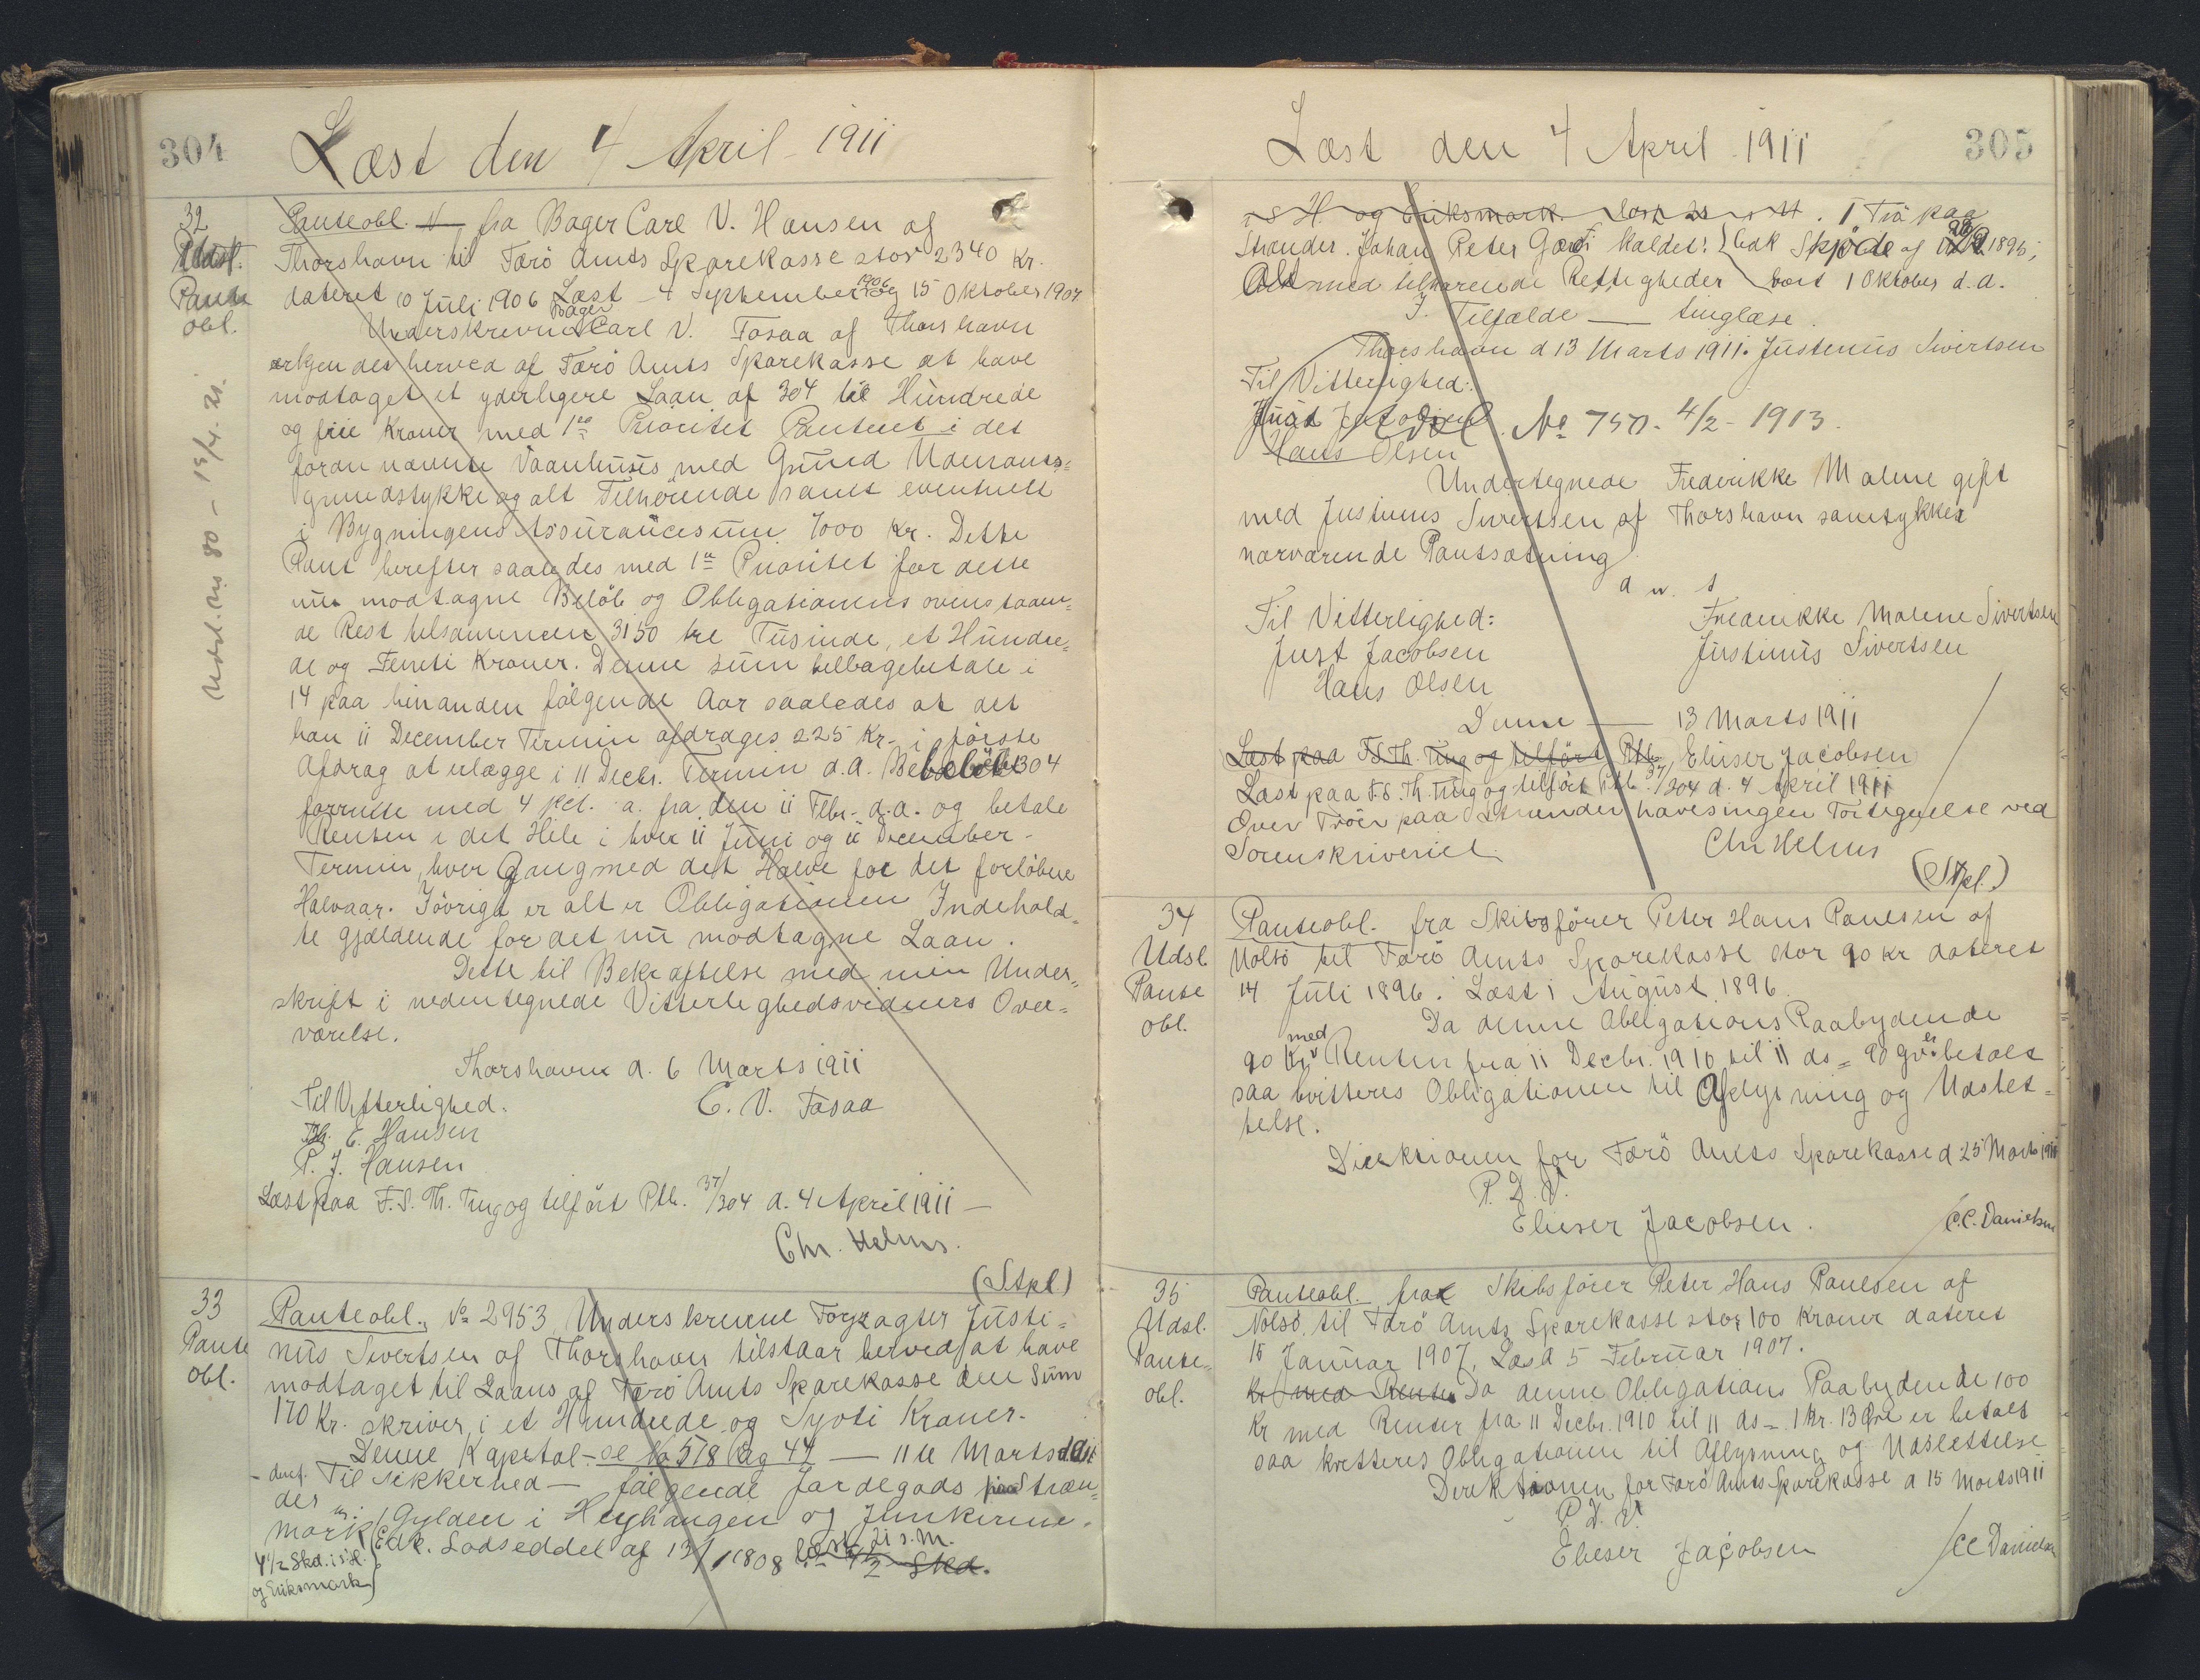 304
Læst den 4 April 1911
32
Udsl.
Pante
obl.
Udsl. No 80 - 19/4. 21.
Panteobl. N — fra Bager Carl V. Hansen af
Thorshavn til Færö Amts Sparekasse stor 2340 Kr.
dateret 10 Juli 1906 Læst 4 September 1906 og 15 Oktober 1907
Underskrevne Bager Carl V. Fasaa af Thorshavn
erkjender herved af Færö Amts Sparekasse at have
modtaget et yderligere Laan af 304 Hundrede
og fire Kroner med 1ste Prioritet Panteret i det
foran nævnte Vaanhuus med Grund Udenoms=
grundstykke og alt Tilhörende samt eventuelt
i Bygningens Assurancesum 7000 Kr. Dette
Pant herefter saaledes med 1ste Prioritet for dette
nu modtagne Belöb og Obligationens ovenstaaen=
de Rest tilsammen 3150 tre Tusinde, et Hundre=
de og Femti Kroner. Denne Sum tilbagebetale i
14 paa hinanden fölgende Aar saaledes at det
han 11 December Termin afdrages 225 Kr. i förste
Afdrag at erlægge i 11 Decbr. Termin d.A. Belöbet 304
forrente med 4 pCt. a. fra den 11 Febr. d.a. og betale
Renten i det Hele i hver 11 Juni og 11 December
Termin, hver Gang med det Halve for det forlöbne
Halvaar. Iövrigt er alt i Obligationen Indehold=
te gjældende for det nu modtagne Laan.
Dette til Bekræftelse med min Under=
skrift i nedentegnede Vitterlighedsvidners Over=
værelse.
Thorshavn d. 6 Marts 1911
Til Vitterlighed.
C. V. Fasaa
Th. E. Hansen
P. J. Hansen
Læst paa F.S. Th. Ting og tilfört Ptb. 37/304 d. 4 April 1911 —
Chr. Helms.
(Stpl)
33
Pante
obl.
Panteobl. No 2953 Underskrevne Forpagter Justi=
nus Sivertsen af Thorshavn tilstaar herved at have
modtaget til Laans af Færö Amts Sparekasse den Sum
170 Kr. skriver et Hundrede og Syvti Kroner.
Denne Kapital — se No 578 Pag 44 — 11te Marts
Til Sikkerhed — fölgende Jordegods paa Stran=
der
mark Gylden i
Edk. Lodseddel af 13/1 1808 læst 21 s.M.
4 1/2 Skd. i s. H.
og Eriksmark
305
Læst den 4 April 1911
s H og Eriksmark. læst 21 s M. 1 Trö paa
Strander. Johan Peter kaldet. Edk Skjöde af 1895;
Alt med tilhörende Rettigheder bort 1 Oktober d.a.
I Tilfælde — tinglæse.
Thorshavn d 13 Marts 1911. Justinus Sivertsen
Til Vitterlighed:
Just Jacobsen
Udsl. No 750. 4/2 - 1913.
Hans Olsen
Undertegnede Frederikke Malene gift
med Justinus Sivertsen af Thorshavn samtykker
nærværende Pantsætning
d u. s
Til Vitterlighed:
Frederikke Malene Sivertsen
Just Jacobsen
Justinus Sivertsen
Hans Olsen
Denne — 13 Marts 1911
Læst paa F.S. Th. Ting og tilfört Ptb. Elieser Jacobsen
Læst paa F.S. Th. Ting og tilfört Ptb. 37/304 d. 4 April 1911
Over Tröen paa Strander haves ingen Fortegnelse ved
Sorenskriveriet.
Chr Helms
(Stpl.)
34
Udsl
Pante
obl.
Panteobl. fra Skibsförer Peter Hans Poulsen af
Nolsö til Færö Amts Sparekasse stor 90 kr dateret
14 Juli 1896. Læst i August 1896
Da denne Obligations Paalydende
90 Kr med Renter fra 11 Decbr. 1910 til 11 ds = 90 er betalt
saa kvitteres Obligationen til Aflysning og Udslet=
telse.
Direktionen for Færö Amts Sparekasse d 25 Marts 1911
P. D. V.
Elieser Jacobsen.
C.C. Danielsen
35
Udsl.
Pante=
obl.
Panteobl. fra Skibsförer Peter Hans Poulsen af
Nolsö, til Færö Amts Sparekasse stor 100 Kroner dateret
15 Januar 1907, Læst 5 Februar 1907.
Kr med Renter Da denne Obligations Paalydende 100
Kr med Renter fra 11 Decbr. 1910 til 11 ds = 1 Kr. 13 Öre er betalt
saa kvitteres Obligationen til Aflysning og Udslettelse
Direktionen for Færö Amts Sparekasse d 15 Marts 1911
P. D. V.
Elieser Jacobsen
CC Danielsen